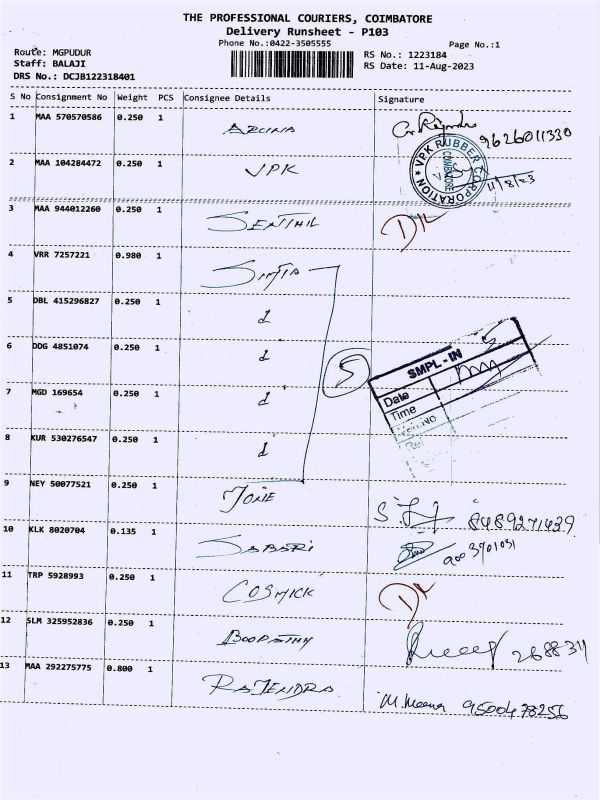 THE PROFESSIONAL COURIERS, COIMBATORE
Delivery Runsheet - P103
Phone No.:0422-3505555
Page No.:1
Route: MGPUDUR
Staff: BALAJI
DRS No.: DCJB122318401
RS No.: 1223184
RS Date: 11-Aug-2023
S No Consignment No Weight PCS Consignee Details Signature
1 MAA 570570586 0.250 1 9626011330
2 MAA 104284472 0.250 1 VPK
VPK RUBBER CORPORATION
COIMBATORE
11/8/23
3 MAA 944012260 0.250 1 SENTHIL
4 VRR 7257221 0.980 1
5 DBL 415296827 0.250 1 d
6 DDG 4851074 0.250 1 d
5
SMPL - IN
Date
Time
7 MGD 169654 0.250 1 d
8 KUR 530276547 0.250 1 d
9 NEY 50077521 0.250 1 8489271439
10 KLK 8020704 0.135 1 SABARI
11 TRP 5928993 0.250 1 COSMICK
12 SLM 325952836 0.250 1 BOOPATHY
13 MAA 292275775 0.800 1 RAJENDRA M. Meena 9500478256